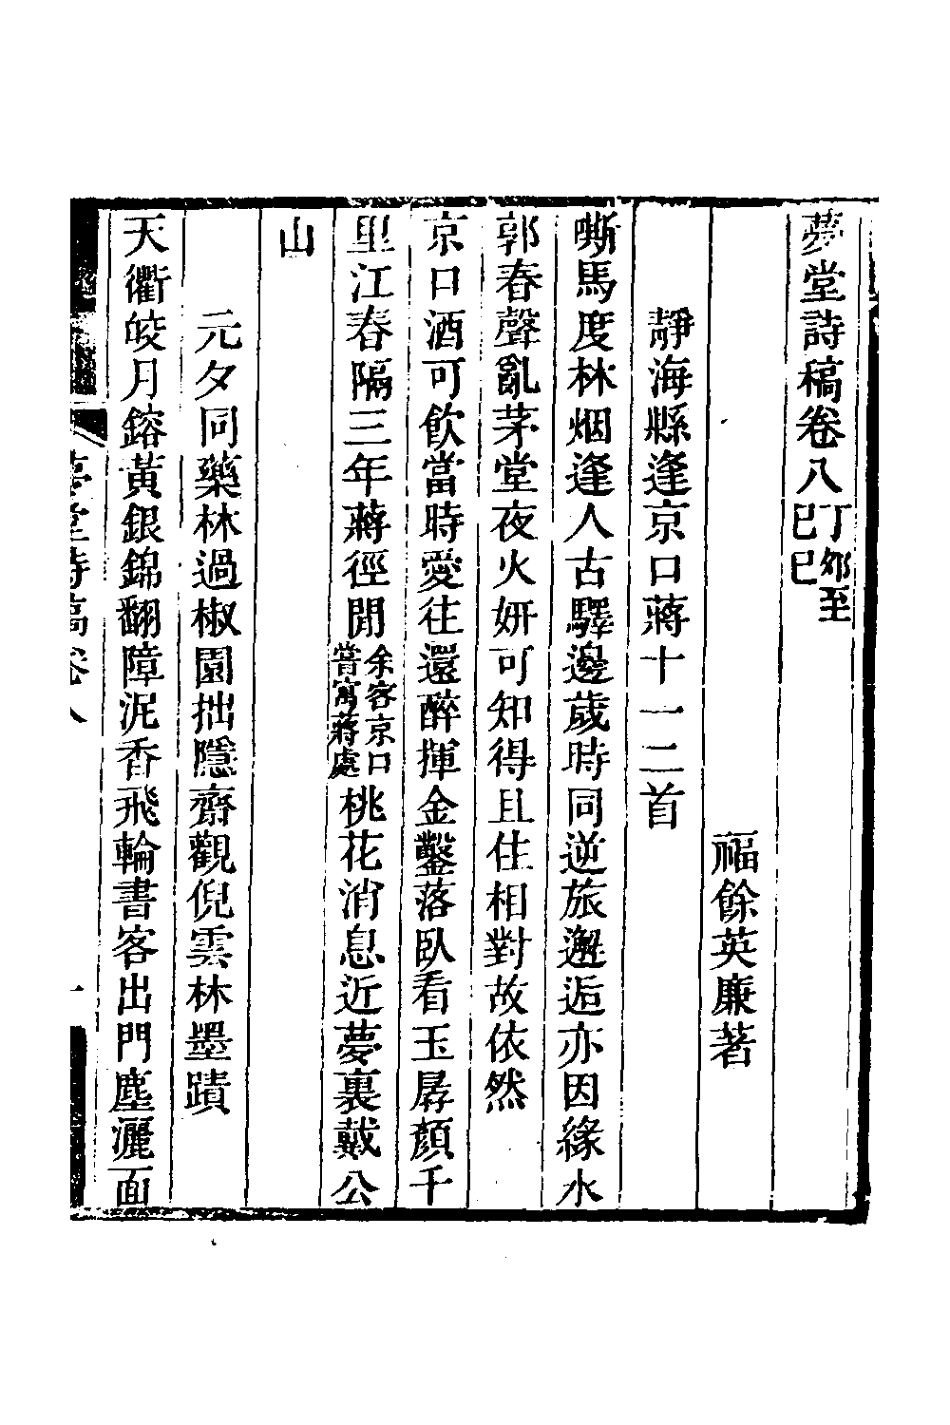 夢堂詩稿卷八丁夘至己巳
福餘英廉著
靜海縣逢京口蔣十一二首
嘶馬度林烟逢人古驛邊歲時同逆旅邂逅亦因緣水
郭春聲亂茅堂夜火妍可知得且住相對故依然
京口酒可飲當時愛往還醉揮金鑿落臥看玉孱顏千
里江春隔三年蔣徑閒余客京口嘗寓蔣處桃花消息近夢裏戴公
山
元夕同藥林過椒園拙隱齋觀倪雲林墨蹟
天衢皎月鎔黃銀錦翻障泥香飛輪書客出門塵灑面
夢堂詩稿卷八
一